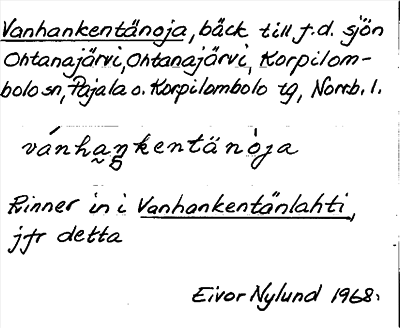 Vanhankentänoja, bäck till f.d. sjön
Ohtanajärvi, Ohtanajärvi, Korpilom-
bolo sn, Pajala o. Korpilombolo tg, Norrb. l.
vánha̰ŋkentänòja
Rinner in i Vanhankentänlahti,
jfr detta
Eivor Nylund 1968.